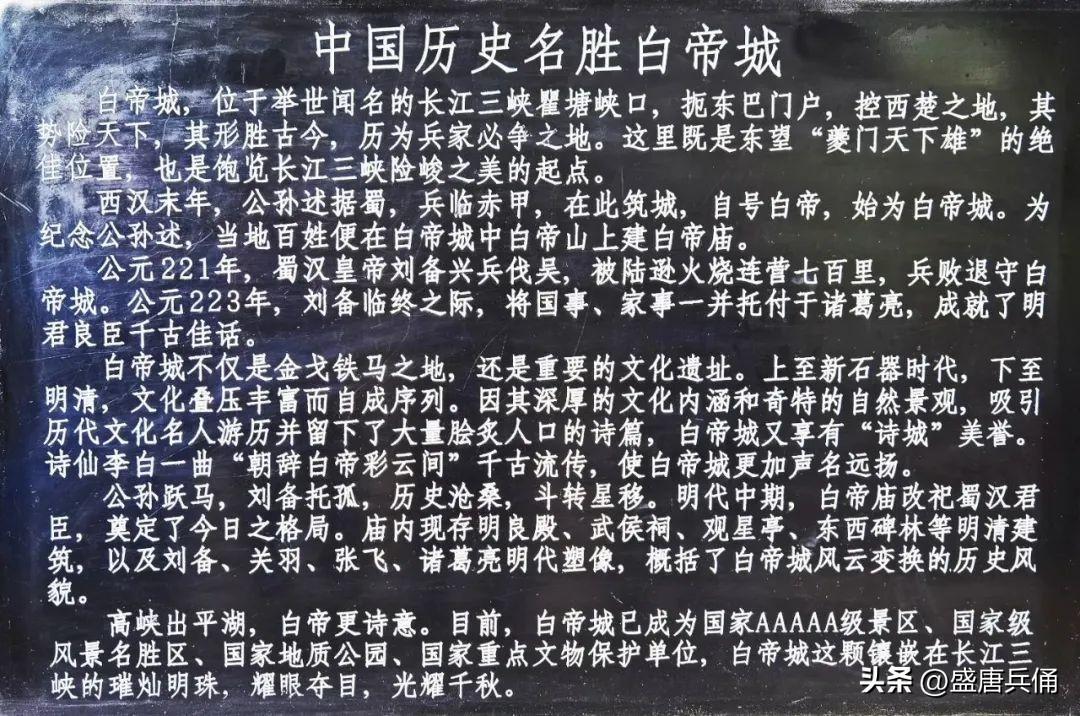 中国历史名胜白帝城
白帝城，位于举世闻名的长江三峡瞿塘峡口，扼东巴门户，控西楚之地，其
势险天下，其形胜古今，历为兵家必争之地。这里既是东望“夔门天下雄”的绝
佳位置，也是饱览长江三峡险峻之美的起点。
西汉末年，公孙述据蜀，兵临赤甲，在此筑城，自号白帝，始为白帝城。为
纪念公孙述，当地百姓便在白帝城中白帝山上建白帝庙。
公元221年，蜀汉皇帝刘备兴兵伐吴，被陆逊火烧连营七百里，兵败退守白
帝城。公元223年，刘备临终之际，将国事、家事一并托付于诸葛亮，成就了明
君良臣千古佳话。
白帝城不仅是金戈铁马之地，还是重要的文化遗址。上至新石器时代，下至
明清，文化叠压丰富而自成序列。因其深厚的文化内涵和奇特的自然景观，吸引
历代文化名人游历并留下了大量脍炙人口的诗篇，白帝城又享有“诗城”美誉。
诗仙李白一曲“朝辞白帝彩云间”千古流传，使白帝城更加声名远扬。
公孙跃马，刘备托孤，历史沧桑，斗转星移。明代中期，白帝庙改祀蜀汉君
臣，奠定了今日之格局。庙内现存明良殿、武侯祠、观星亭、东西碑林等明清建
筑，以及刘备、关羽、张飞、诸葛亮明代塑像，概括了白帝城风云变换的历史风
貌。
高峡出平湖，白帝更诗意。目前，白帝城已成为国家AAAAA级景区、国家级
风景名胜区、国家地质公园、国家重点文物保护单位，白帝城这颗镶嵌在长江三
峡的璀灿明珠，耀眼夺目，光耀千秋。
头条 @盛唐兵俑